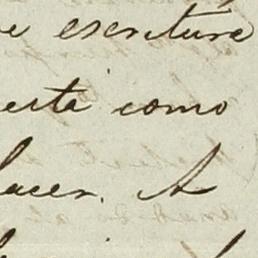 e escritura
esta como
lacer. A